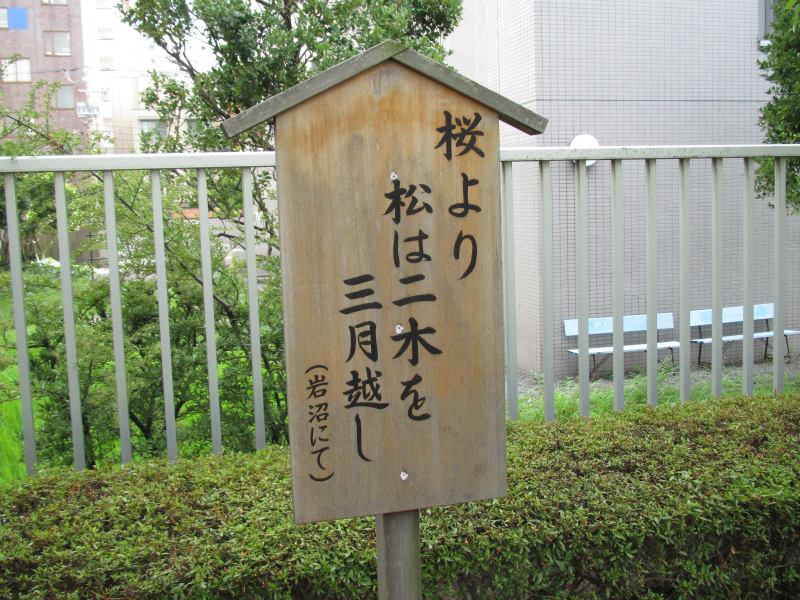 桜より
松は二木を
三月越し
（岩沼にて）